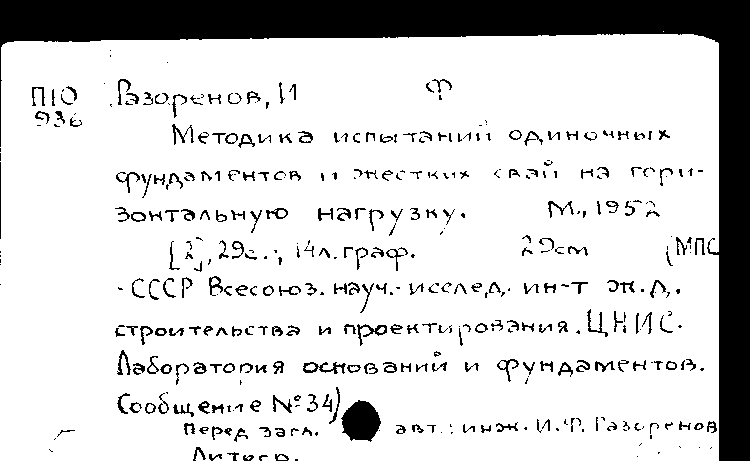 П10 Разоренов, И Ф
936
Методика испытаний одиночных
фундаментов и жестких свай на гори-
зонтальную нагрузку. М., 1952
[2], 29с.; 14л. граф. 29см (МПС
-СССР Всесоюз. науч.-исслед. ин-т ж.д.
строительства и проектирования. ЦНИС.
Лаборатория оснований и фундаментов.
Сообщение № 34)
Перед загл. авт.: инж. И.Ф. Разоренов
Литогр.